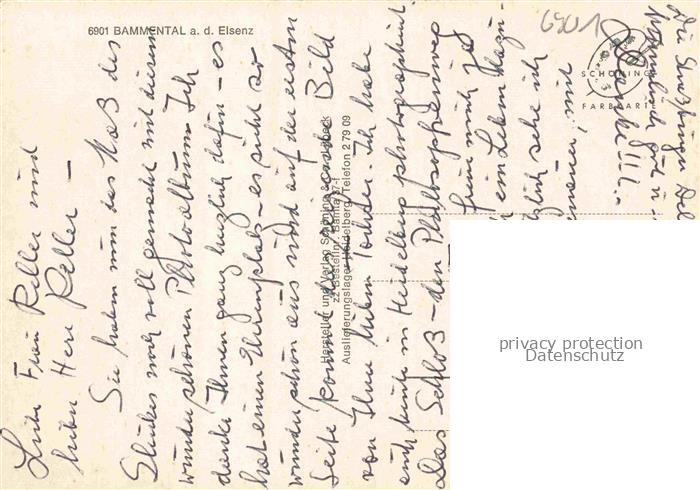 6901 BAMMENTAL a. d. Elsenz
6901
SCHÖNING
FARBKARTE
Hersteller und Verlag Schöning & Co., Lübeck
Auslieferungslager Heidelberg, Telefon 2 79 09
Liebe Frau Keller und
lieber Herr Keller –
Sie haben nun das Maß des
Glückes noch voll gemacht mit diesem
wunderschönen Photoalbum. Ich
danke Ihnen ganz herzlich dafür – es
hat einen Ehrenplatz – es sieht so
wunderschön aus und auf der ersten
Seite kommt das Bild
von Ihrer lieben Tochter. Ich habe
auch heute in Heidelberg photographiert.
Das Schloß – den Philosophenweg
freue mich
ein Leben
sehe ich
mit
Danke!!!
privacy protection
Datenschutz